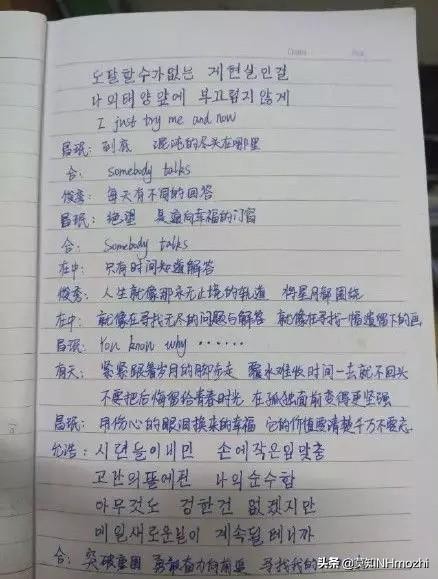 도달할수가없는 게현실인걸
나의태양앞에 부끄럽지않게
I just try me and now
昌珉: 到底 混沌的尽头在哪里
合: Somebody talks
俊秀: 每天有不同的回答
昌珉: 绝望 是通向幸福的门窗
合: Somebody talks
在中: 只有时间知道解答
俊秀: 人生就像那永无止境的轨道 将星月都围绕
在中: 就像在寻找无尽的问题与解答 就像在寻找一幅遗留下的画
昌珉: You know why ……
有天: 紧紧跟着岁月的脚步走 覆水难收时间一去就不回头
不要把后悔留给青春时光 在孤独面前变得更坚强
昌珉: 用伤心的眼泪换来的幸福 它的价值要清楚千万不要忘
允浩: 시련들이내민 손에작은입맞춤
고난의뜰에핀 나의순수함
아무것도 정한건 없겠지만
매일새로운날이 계속될테니까
合: 突破重围 勇敢奋力向前 寻找我的
头条 @莫知NHmozhi